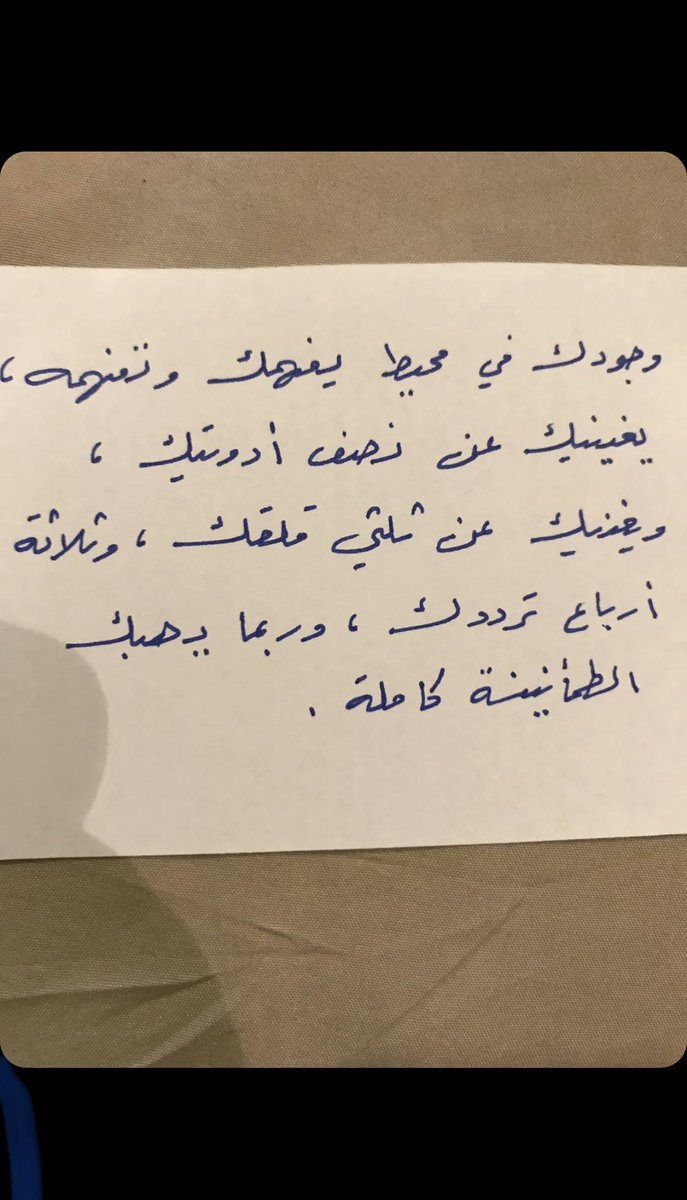 وجودك في محيط يفهمك وتفهمه،
يغنيك عن نصف أدويتك ،
ويغنيك عن ثلثي قلقك ، وثلاثة
أرباع ترددك ، وربما يهبك
الطمأنينة كاملة .